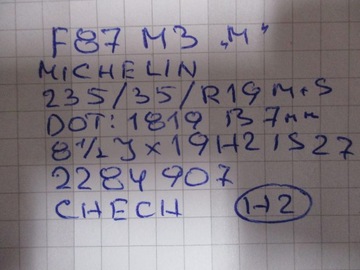 F87 M3 „M"
MICHELIN
235/35/R19 M+S
DOT: 1819 B 7mm
8½ J x 19H2 IS27
2284 907
CHECH H2